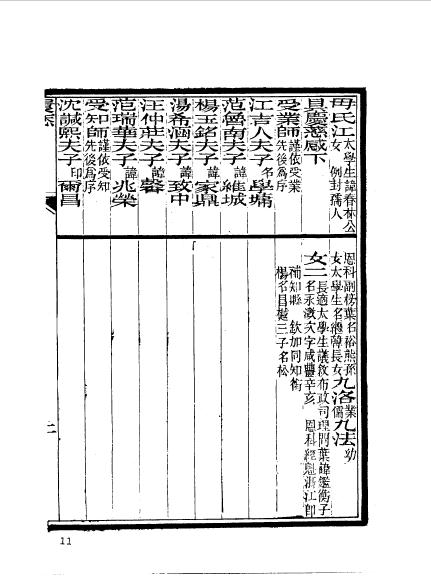 母氏江 太學生諱春林公
女 例封孺人
具慶慈感下
受業師 謹依受業
先後為序
江吉人夫子 名學埔
范魯南夫子 諱維城
楊玉銘夫子 諱家鼎
湯希涵夫子 諱致中
汪仲莊夫子 諱馨
范瑞華夫子 諱兆榮
受知師 謹依受知
先後為序
沈諴熙夫子 印爾昌
恩科副榜葉名裕熊孫
女太學生名 長女 九洛 業儒 九法 幼
女二 長適太學生議敘布政司理問葉諱鑑衡子
名永 次字咸豐辛亥 恩科經魁浙江即
補知縣 欽加同知銜
楊名昌 三子名松
二
11